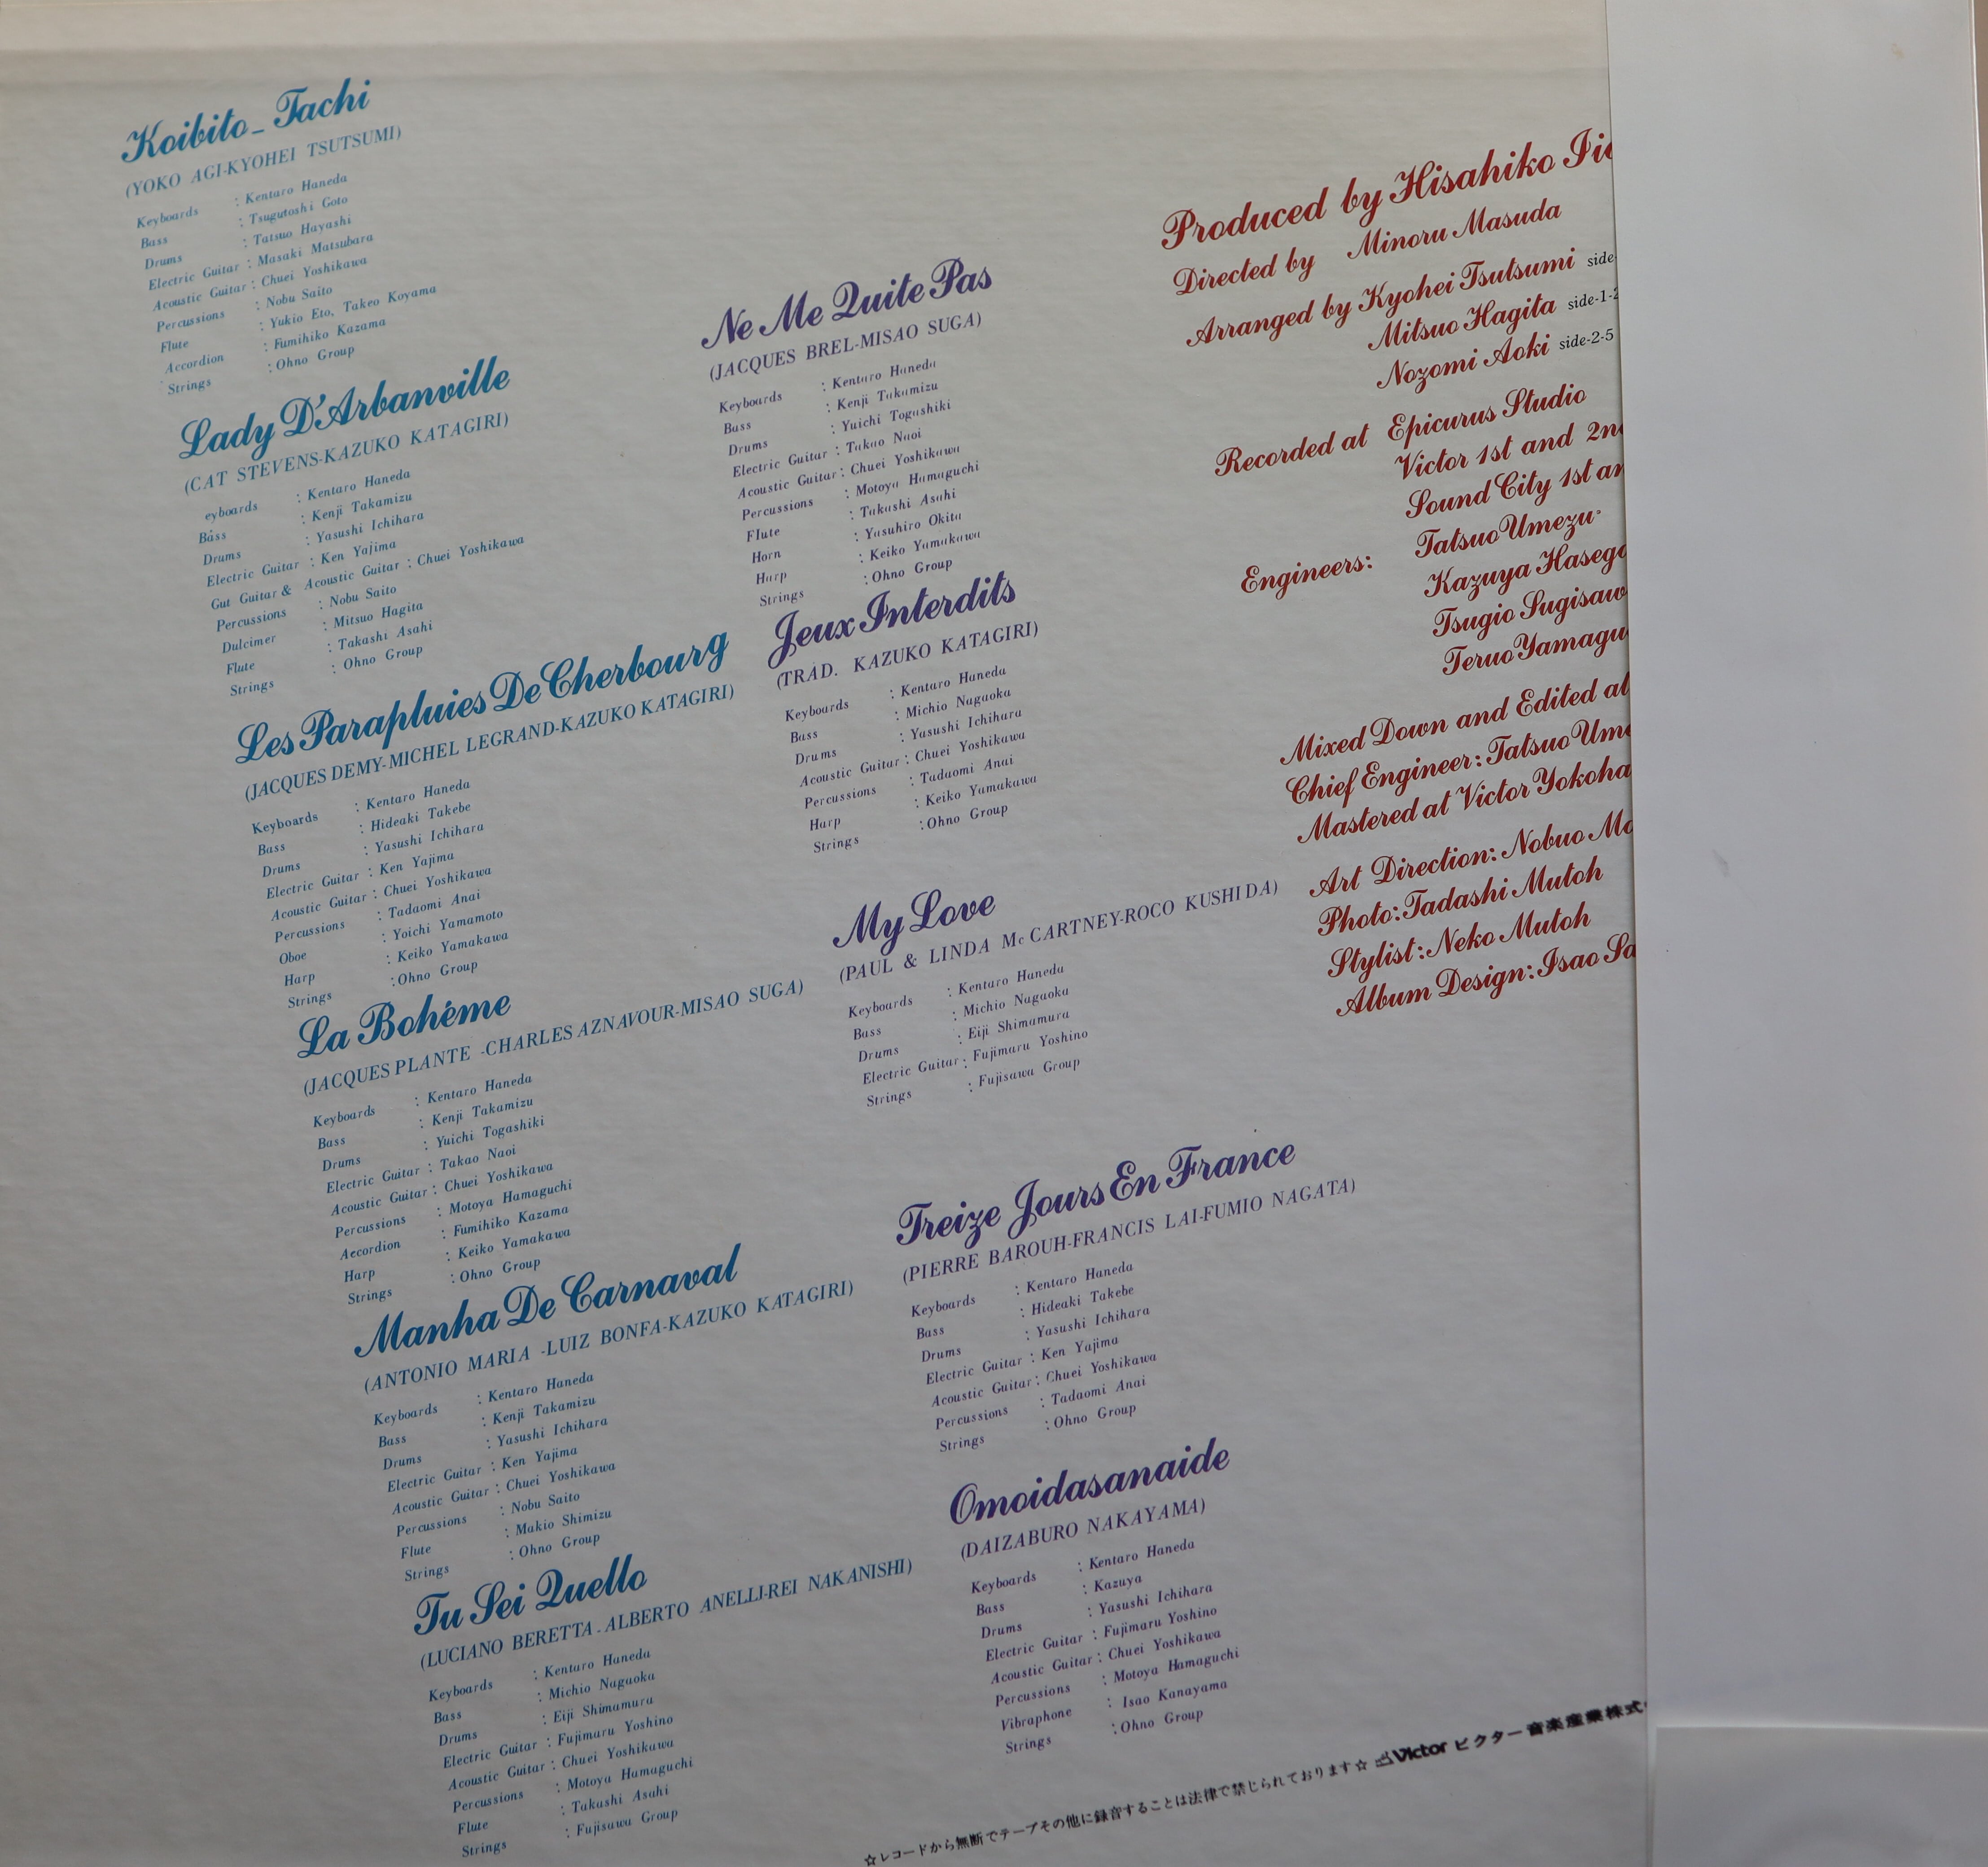 Koibito_Tachi
(YOKO AGI-KYOHEI TSUTSUMI)
Keyboards : Kentaro Haneda
Bass : Tsugutoshi Goto
Drums : Tatsuo Hayashi
Electric Guitar : Masaki Matsubara
Acoustic Guitar : Chuei Yoshikawa
Percussions : Nobu Saito
Flute : Yukio Eto, Takeo Koyama
Accordion : Fumihiko Kazama
Strings : Ohno Group
Lady D'Arbanville
(CAT STEVENS-KAZUKO KATAGIRI)
eyboards : Kentaro Haneda
Bass : Kenji Takamizu
Drums : Yasushi Ichihara
Electric Guitar : Ken Yajima
Gut Guitar & Acoustic Guitar : Chuei Yoshikawa
Percussions : Nobu Saito
Dulcimer : Mitsuo Hagita
Flute : Takashi Asahi
Strings : Ohno Group
Les Parapluies De Cherbourg
(JACQUES DEMY-MICHEL LEGRAND-KAZUKO KATAGIRI)
Keyboards : Kentaro Haneda
Bass : Hideaki Takebe
Drums : Yasushi Ichihara
Electric Guitar : Ken Yajima
Acoustic Guitar : Chuei Yoshikawa
Percussions : Tadaomi Anai
Oboe : Yoichi Yamamoto
Harp : Keiko Yamakawa
Strings : Ohno Group
La Bohéme
(JACQUES PLANTE -CHARLES AZNAVOUR-MISAO SUGA)
Keyboards : Kentaro Haneda
Bass : Kenji Takamizu
Drums : Yuichi Togashiki
Electric Guitar : Takao Naoi
Acoustic Guitar : Chuei Yoshikawa
Percussions : Motoya Hamaguchi
Accordion : Fumihiko Kazama
Harp : Keiko Yamakawa
Strings : Ohno Group
Manha De Carnaval
(ANTONIO MARIA -LUIZ BONFA-KAZUKO KATAGIRI)
Keyboards : Kentaro Haneda
Bass : Kenji Takamizu
Drums : Yasushi Ichihara
Electric Guitar : Ken Yajima
Acoustic Guitar : Chuei Yoshikawa
Percussions : Nobu Saito
Flute : Makio Shimizu
Strings : Ohno Group
Tu Sei Quello
(LUCIANO BERETTA-ALBERTO ANELLI-REI NAKANISHI)
Keyboards : Kentaro Haneda
Bass : Michio Nagaoka
Drums : Eiji Shimamura
Electric Guitar : Fujimaru Yoshino
Acoustic Guitar : Chuei Yoshikawa
Percussions : Motoya Hamaguchi
Flute : Takashi Asahi
Strings : Fujisawa Group
Ne Me Quite Pas
(JACQUES BREL-MISAO SUGA)
Keyboards : Kentaro Haneda
Bass : Kenji Takamizu
Drums : Yuichi Togashiki
Electric Guitar : Takao Naoi
Acoustic Guitar : Chuei Yoshikawa
Percussions : Motoya Hamaguchi
Flute : Takashi Asahi
Horn : Yasuhiro Okita
Harp : Keiko Yamakawa
Strings : Ohno Group
Jeux Interdits
(TRAD. KAZUKO KATAGIRI)
Keyboards : Kentaro Haneda
Bass : Michio Nagaoka
Drums : Yasushi Ichihara
Acoustic Guitar : Chuei Yoshikawa
Percussions : Tadaomi Anai
Harp : Keiko Yamakawa
Strings : Ohno Group
My Love
(PAUL & LINDA Mc CARTNEY-ROCO KUSHIDA)
Keyboards : Kentaro Haneda
Bass : Michio Nagaoka
Drums : Eiji Shimamura
Electric Guitar : Fujimaru Yoshino
Strings : Fujisawa Group
Treize Jours En France
(PIERRE BAROUH-FRANCIS LAI-FUMIO NAGATA)
Keyboards : Kentaro Haneda
Bass : Hideaki Takebe
Drums : Yasushi Ichihara
Electric Guitar : Ken Yajima
Acoustic Guitar : Chuei Yoshikawa
Percussions : Tadaomi Anai
Strings : Ohno Group
Omoidasanaide
(DAIZABURO NAKAYAMA)
Keyboards : Kentaro Haneda
Bass : Kazuya
Drums : Yasushi Ichihara
Electric Guitar : Fujimaru Yoshino
Acoustic Guitar : Chuei Yoshikawa
Percussions : Motoya Hamaguchi
Vibraphone : Isao Kanayama
Strings : Ohno Group
Produced by Hisahiko
Directed by Minoru Masuda
Arranged by Kyohei Tsutsumi side-
Mitsuo Hagita side-1-2
Nozomi Aoki side-2-5
Recorded at Epicurus Studio
Victor 1st and 2n
Sound City 1st an
Engineers: Tatsuo Umezu
Kazuya Hasega
Tsugio Sugisaw
Teruo Yamagu
Mixed Down and Edited at
Chief Engineer: Tatsuo Ume
Mastered at Victor Yokoha
Art Direction: Nobuo Mo
Photo: Tadashi Mutoh
Stylist: Neko Mutoh
Album Design: Isao Sa
☆レコードから無断でテープその他に録音することは法律で禁じられております☆ Victor ビクター音楽産業株式